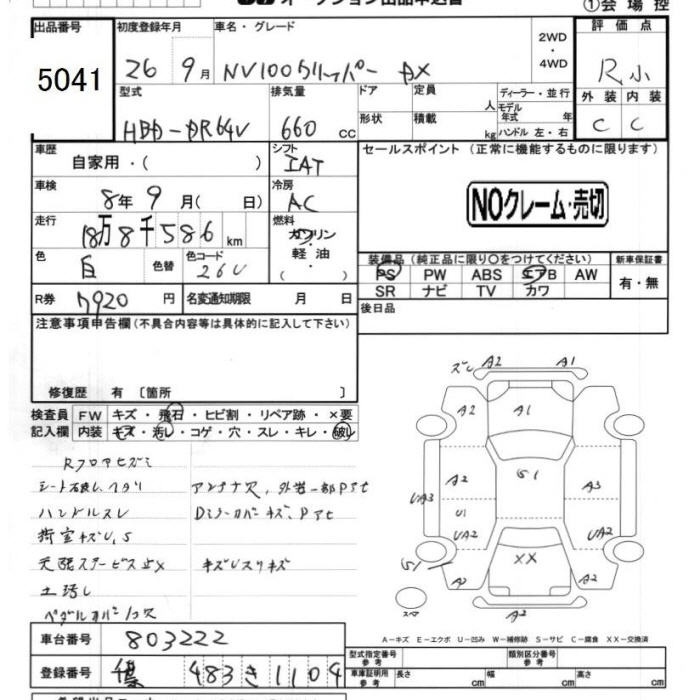 オークション出品申込書
①会場控
出品番号
5041
初度登録年月
26 9月
車名・グレード
NV100クリッパー DX
2WD
・
4WD
評価点
R小
外装 内装
C C
型式
HBD-DR64V
排気量
660 cc
ドア
形状
定員
人
積載
kg
ディーラー・並行
モデル年式 年
ハンドル 左・右
車歴
自家用・( )
シフト
IAT
セールスポイント (正常に機能するものに限ります)
NOクレーム・売切
車検
8年 9月( 日)
冷房
AC
走行
18万8千586km
燃料
ガソリン
軽油
( )
色
白
色替
色コード
26U
装備品 (純正品に限り○をつけてください)
PS PW ABS エアB AW
SR ナビ TV カワ
新車保証書
有・無
R券 7920円
名変通知期限 月 日
後日品
注意事項申告欄(不具合内容等は具体的に記入して下さい)
修復歴 有 〔箇所 〕
検査員記入欄
FW キズ・飛石・ヒビ割・リペア跡・×要
内装 キズ・汚れ・コゲ・穴・スレ・キレ・破れ
Rフロアヒズミ
シート破れ、ヘタリ
アンテナ欠、外装一部Pすて
ハンドルスレ
Dミラーカバーキズ、Pすて
荷室キズU、S
キズUスリキズ
土汚し
ズレ A2 A1
A2 A1
A2 S1 A3
UA3 U1
UA2 UA2
S1 XX
A2 A2
A2
スペア
A-キズ E-エクボ U-凹み W-補修跡 S-サビ C-腐食 XX-交換済
車台番号 803222
登録番号 千葉 483 き 1104
型式指定番号 参考
類別区分番号 参考
車庫証明用 参考 長さ cm 幅 cm 高さ cm